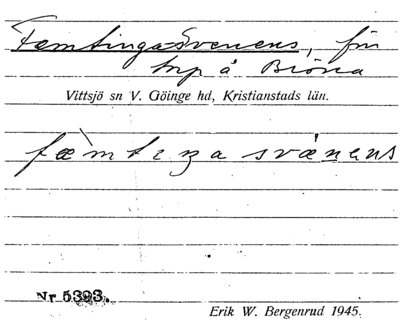 Femtinga-Svenens, fn
trp å Bröna
Vittsjö sn V. Göinge hd, Kristianstads län.
fæ̀mtiŋa svænens
Nr 5393.
Erik W. Bergenrud 1945.